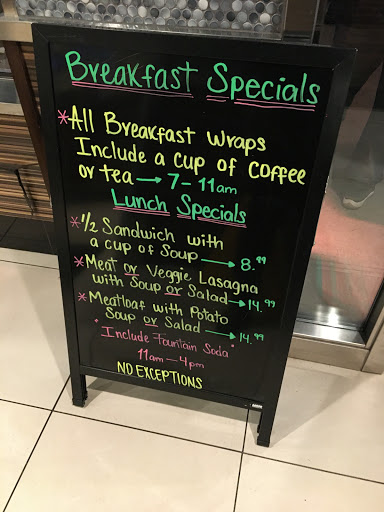 Breakfast Specials
*All Breakfast wraps
Include a cup of coffee
or tea → 7-11am
Lunch Specials
*1/2 Sandwich with
a cup of Soup → 8.99
*Meat or Veggie Lasagna
with Soup or Salad → 14.99
*Meatloaf with Potato
Soup or Salad → 14.99
• Include Fountain Soda
11am-4pm
NO EXCEPTIONS